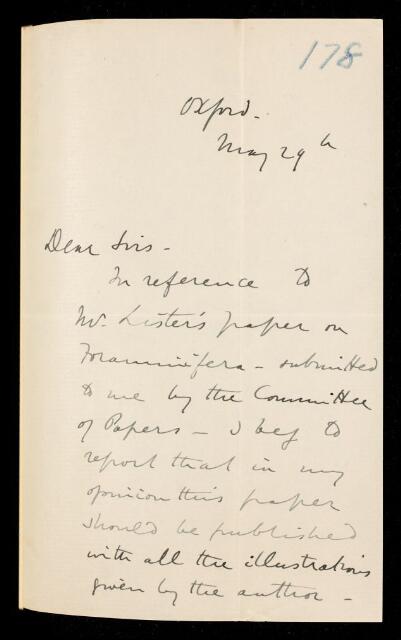 178
Oxford.
May 29th
Dear Sirs -
In reference to
Mr. Lister's paper on
Foraminifera - submitted
to me by the Committee
of Papers - I beg to
report that in my
opinion this paper
should be published
with all the illustrations
given by the author -